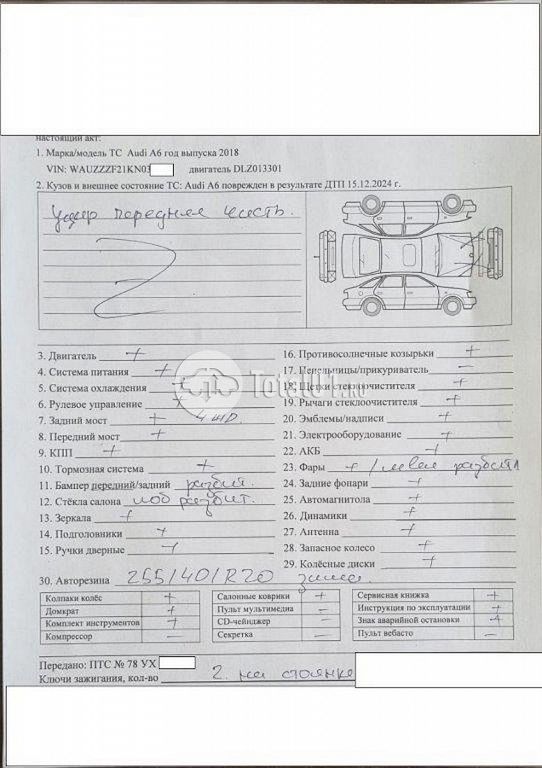 настоящий акт:
1. Марка/модель ТС Audi A6 год выпуска 2018
VIN: WAUZZZF21KN03 двигатель DLZ013301
2. Кузов и внешнее состояние ТС: Audi A6 поврежден в результате ДТП 15.12.2024 г.
удар передняя часть.
3. Двигатель +
4. Система питания +
5. Система охлаждения +
6. Рулевое управление +
7. Задний мост + 4WD.
8. Передний мост +
9. КПП +
10. Тормозная система +
11. Бампер передний/задний разбит.
12. Стёкла салона лоб разбит.
13. Зеркала +
14. Подголовники +
15. Ручки дверные +
16. Противосолнечные козырьки +
17. Пепельницы/прикуриватель –
18. Щетки стеклоочистителя +
19. Рычаги стеклоочистителя +
20. Эмблемы/надписи +
21. Электрооборудование +
22. АКБ +
23. Фары + / левая разбита
24. Задние фонари +
25. Автомагнитола +
26. Динамики +
27. Антенна +
28. Запасное колесо +
29. Колёсные диски +
30. Авторезина 255/40/R20 зима.
Колпаки колёс +
Домкрат +
Комплект инструментов +
Компрессор –
Салонные коврики +
Пульт мультимедиа –
CD-чейнджер –
Секретка –
Сервисная книжка +
Инструкция по эксплуатации +
Знак аварийной остановки +
Пульт вебасто –
Передано: ПТС № 78 УХ
Ключи зажигания, кол-во 2. на стоянке